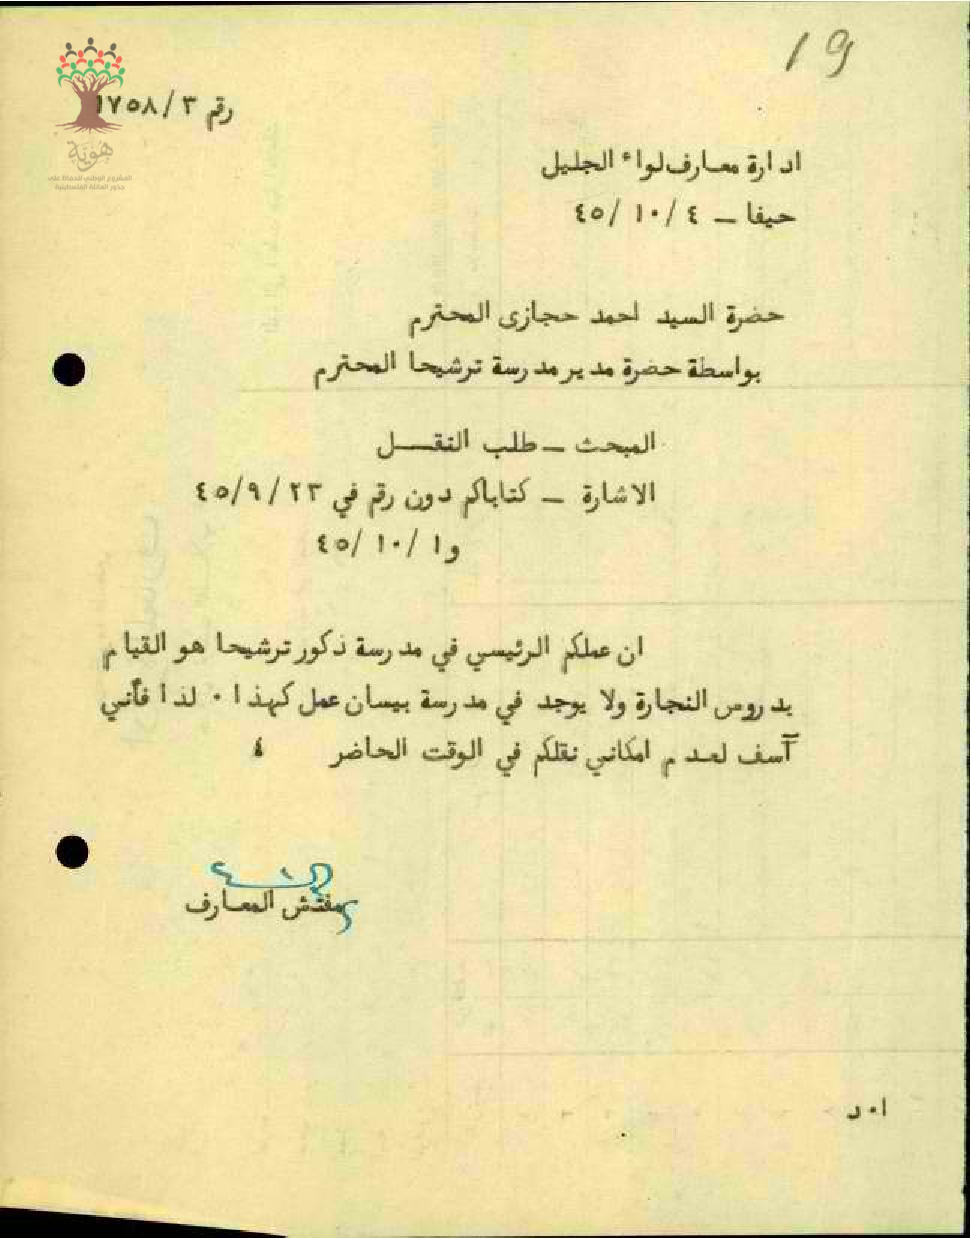 19
رقم ٣/١٧٥٨
هوية
المشروع الوطني للحفاظ على
جذور العائلة الفلسطينية
ادارة معارف لواء الجليل
حيفا ــ ٤ /١٠ /٤٥
حضرة السيد احمد حجازى المحترم
بواسطة حضرة مدير مدرسة ترشيحا المحترم
المبحث ــ طلب النقــــل
الاشارة ــ كتاباكم دون رقم في ٢٣ /٩/ ٤٥
و١ /١٠ /٤٥
ان عملكم الرئيسي في مدرسة ذكور ترشيحا هو القيام
بدروس النجارة ولا يوجد في مدرسة بيسان عمل كهذا ٠ لذا فأني
آسف لعدم امكاني نقلكم في الوقت الحاضر
مفتش المعارف
ا٠د